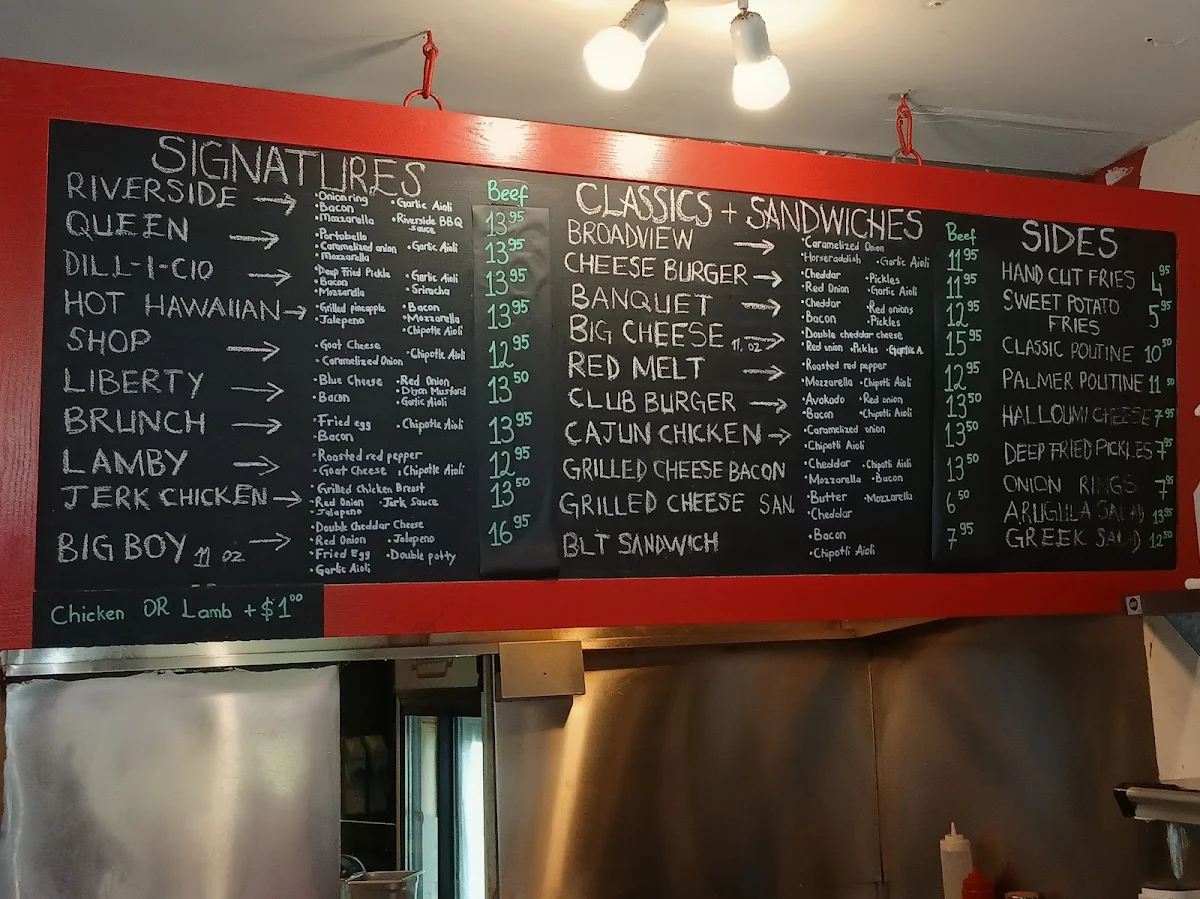 SIGNATURES
Beef
RIVERSIDE → •Onion ring •Garlic Aioli 13 95
•Bacon
•Mozzarella •Riverside BBQ
sauce
QUEEN → •Portobello 13 95
•Caramelized onion •Garlic Aioli
•Mozzarella
DILL-I-CIO → •Deep Fried Pickle •Garlic Aioli 13 95
•Bacon •Sriracha
•Mozzarella
HOT HAWAIIAN → •Grilled pineapple •Bacon 13 95
•Jalepeno •Mozzarella
•Chipotle Aioli
SHOP → •Goat Cheese •Chipotle Aioli 12 95
•Caramelized Onion
LIBERTY → •Blue Cheese •Red Onion 13 50
•Bacon •Dijon Mustard
•Garlic Aioli
BRUNCH → •Fried egg •Chipotle Aioli 13 95
•Bacon
LAMBY → •Roasted red pepper 12 95
•Goat Cheese •Chipotle Aioli
JERK CHICKEN → •Grilled Chicken Breast 13 50
•Red Onion •Jerk Sauce
•Jalapeno
BIG BOY 11 OZ → •Double Cheddar Cheese 16 95
•Red Onion •Jalepeno
•Fried Egg •Double patty
•Garlic Aioli
Chicken OR Lamb + $1 00
CLASSICS + SANDWICHES
Beef
BROADVIEW → •Caramelized Onion 11 95
•Horseraddish •Garlic Aioli
CHEESE BURGER → •Cheddar •Pickles 11 95
•Red Onion •Garlic Aioli
BANQUET → •Cheddar •Red onions 12 95
•Bacon •Pickles
BIG CHEESE 11. OZ → •Double cheddar cheese 15 95
•Red union •Pickles •Garlic A.
RED MELT → •Roasted red pepper 12 95
•Mozzarella •Chipotli Aioli
CLUB BURGER → •Avokado •Red onion 13 50
•Bacon •Chipotli Aioli
CAJUN CHICKEN → •Caramelized onion 13 50
•Chipotli Aioli
GRILLED CHEESE BACON •Cheddar •Chipotli Aioli 13 50
•Mozzarella •Bacon
GRILLED CHEESE SAN. •Butter •Mozzarella 6 50
•Cheddar
BLT SANDWICH •Bacon 7 95
•Chipotli Aioli
SIDES
HAND CUT FRIES 4 95
SWEET POTATO
FRIES 5 95
CLASSIC POUTINE 10 50
PALMER POUTINE 11 50
HALLOUMI CHEESE 7 95
DEEP FRIED PICKLES 7 95
ONION RINGS 7 95
ARUGULA SALAD 13 95
GREEK SALAD 12 50